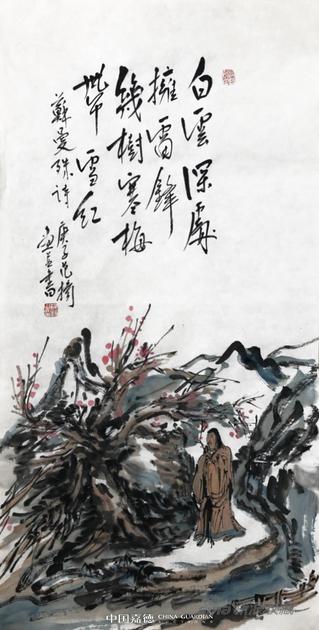 白雲深處
擁雷鋒
幾樹寒梅
帶雪紅
蘇曼殊詩
庚子范揚
画并書
中国嘉德 CHINA GUARDIAN